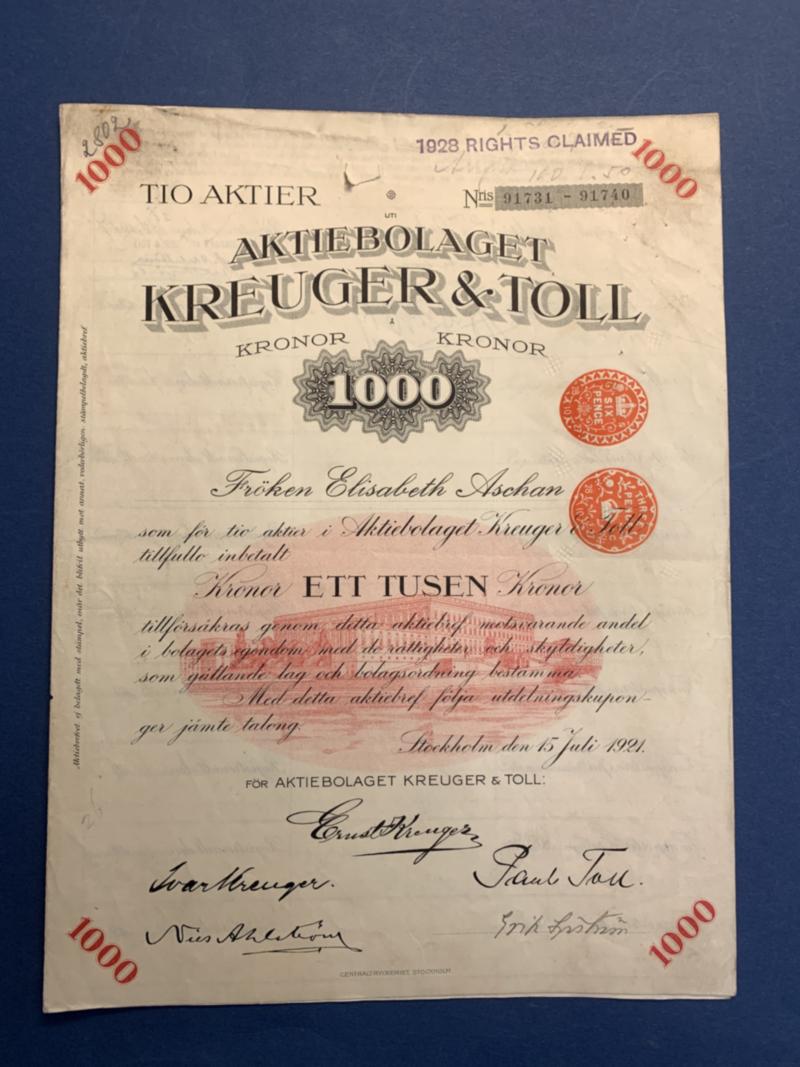 2802
1000
1928 RIGHTS CLAIMED
1000
TIO AKTIER
Nris 91731 - 91740
UTI
AKTIEBOLAGET
KREUGER & TOLL
Å
KRONOR KRONOR
1000
SIX PENCE
Fröken Elisabeth Aschan
THREE PENCE
som för tio aktier i Aktiebolaget Kreuger & Toll
tillfullo inbetalt
Kronor ETT TUSEN Kronor
tillförsäkras genom detta aktiebref motsvarande andel
i bolagets egendom med de rättigheter och skyldigheter,
som gällande lag och bolagsordning bestämma.
Med detta aktiebref följa utdelningskupon-
ger jämte talong.
Stockholm den 15 Juli 1921.
FÖR AKTIEBOLAGET KREUGER & TOLL:
Ernst Kreuger
Ivar Kreuger.
Paul Toll.
Nils Ahlström
Erik
1000
1000
CENTRALTRYCKERIET, STOCKHOLM
Aktiebrefvet ej belagdt med stämpel, enär det blifvit utbytt mot annat, vederbörligen stämpelbelagdt, aktiebref